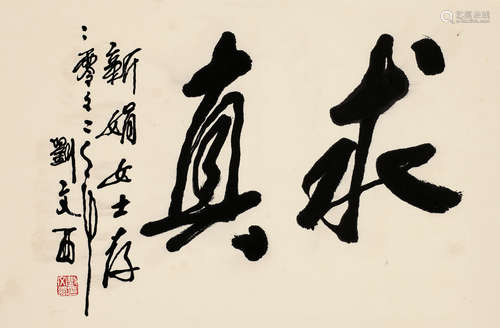 求真
新娟女士存
二零零二年
劉文西